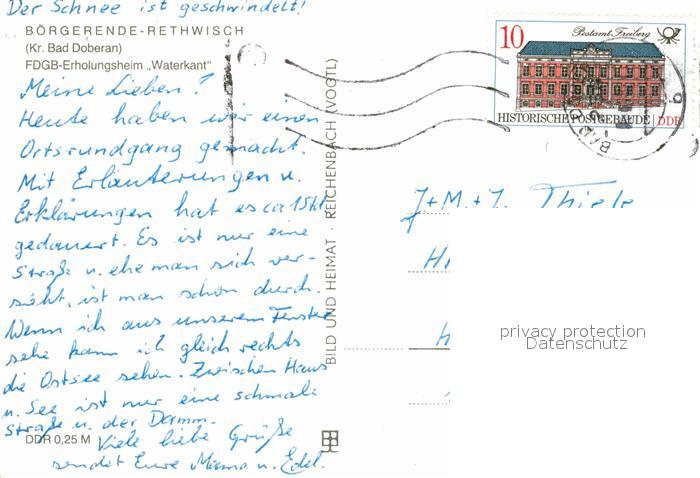 Der Schnee ist geschwindelt!
BÖRGERENDE-RETHWISCH
(Kr. Bad Doberan)
FDGB-Erholungsheim „Waterkant"
Meine Lieben!
Heute haben wir einen
Ortsrundgang gemacht.
Mit Erläuterungen u.
Erklärungen hat es ca 1 Std
gedauert. Es ist nur eine
Straße u. ehe man sich ver-
sieht, ist man schon durch.
Wenn ich aus unserem Fenster
sehe kann ich gleich rechts
die Ostsee sehen. Zwischen Haus
u. See ist nur eine schmale
Straße u. der Damm.
Viele liebe Grüße
sendet Eure Mama u.
DDR 0,25 M
BILD UND HEIMAT · REICHENBACH (VOGTL)
10
Postamt Freiberg
HISTORISCHE POSTGEBÄUDE DDR
J+M.+J. Thiele
privacy protection
Datenschutz